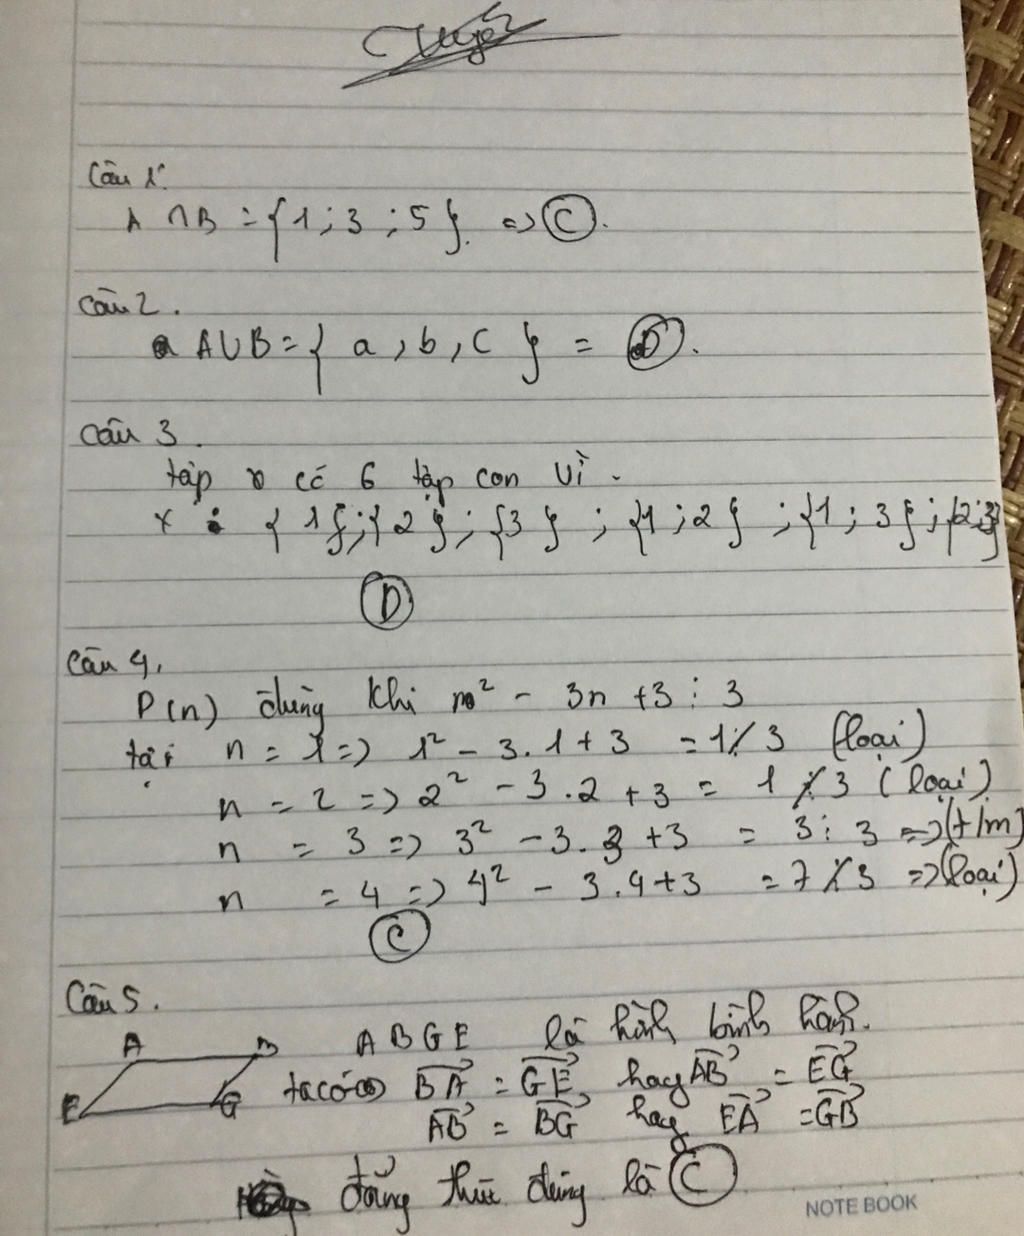 Câu 1.
A ∩ B = { 1 ; 3 ; 5 }. => C.
Câu 2.
A ∪ B = { a , b , c } = D.
Câu 3.
tập x có 6 tập con vì.
x : { 1 }; { 2 }; { 3 } ; { 1 ; 2 } ; { 1 ; 3 } ; { 2 ; 3 }
D
Câu 4.
P(n) đúng khi n² - 3n + 3 ⋮ 3
tại n = 1 => 1² - 3.1 + 3 = 1 ⋮̸ 3 (loại)
n = 2 => 2² - 3.2 + 3 = 1 ⋮̸ 3 (loại)
n = 3 => 3² - 3.3 + 3 = 3 ⋮ 3 => (t/m)
n = 4 => 4² - 3.4 + 3 = 7 ⋮̸ 3 => (loại)
C
Câu 5.
A B G E là hình bình hành.
A B
ta có => BA→ = GE→ hay AB→ = EG→
E G
AB→ = BG→ hay EA→ = GB→
đẳng thức đúng là C
NOTE BOOK